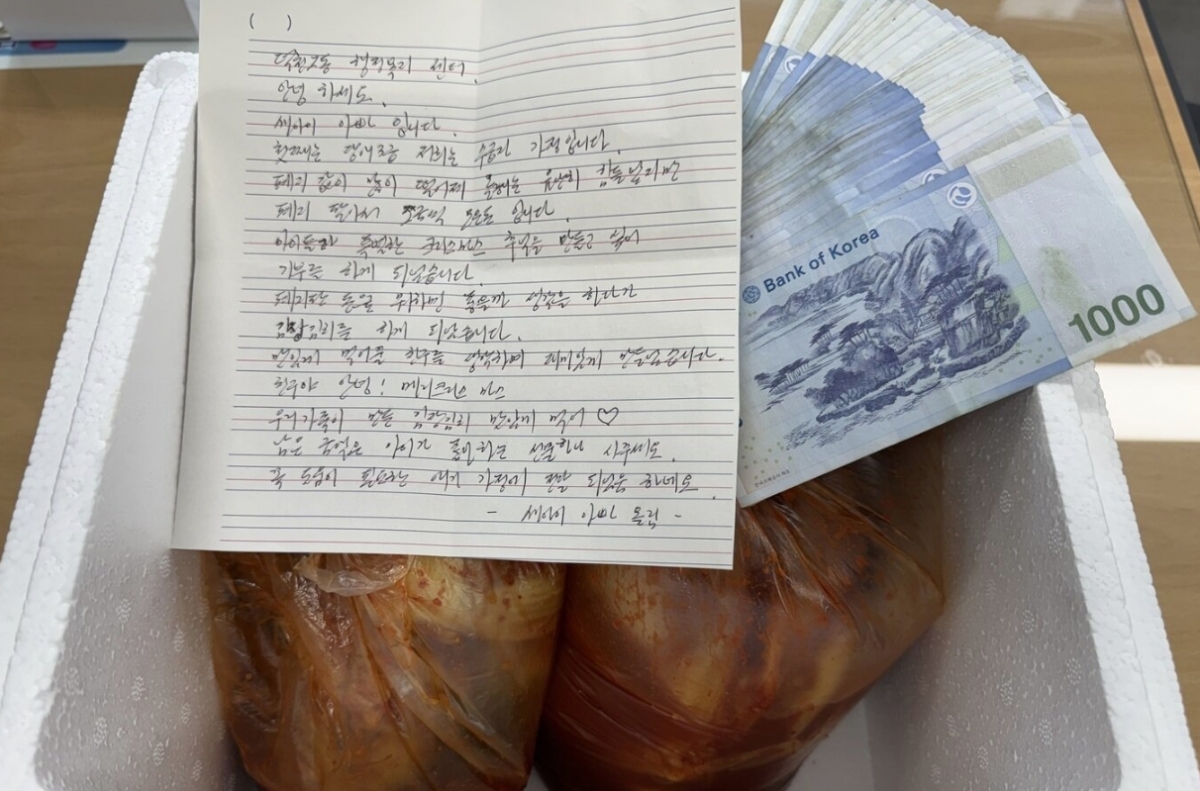 ( )
덕천2동 행정복지 센터.
안녕 하세요.
세아이 아빠 입니다.
첫째는 장애 3급 저희는 수급자 가정입니다.
폐지 값이 많이 떨어져 올해는 유난히 힘들었지만
폐지 팔아서 조금씩 모은돈 입니다.
특별한 크리스마스 추억을 만들고 싶어
기부를 하게 되었습니다.
폐지판 돈을 뭐하면 좋을까 생각을 하다가
김장김치를 하게 되었습니다.
맛있게 먹어줄 친구를 생각하며 재미있게 만들었습니다.
친구야 안녕! 메리크리스 마스
우리가족이 만든 김장김치 맛있게 먹어 ♡
남은 금액은 아이가 좋아하는 선물하나 사주세요.
꼭 도움이 필요한 아기 가정에 전달 되었음 하네요.
- 세아이 아빠 올림 -
Bank of Korea
1000